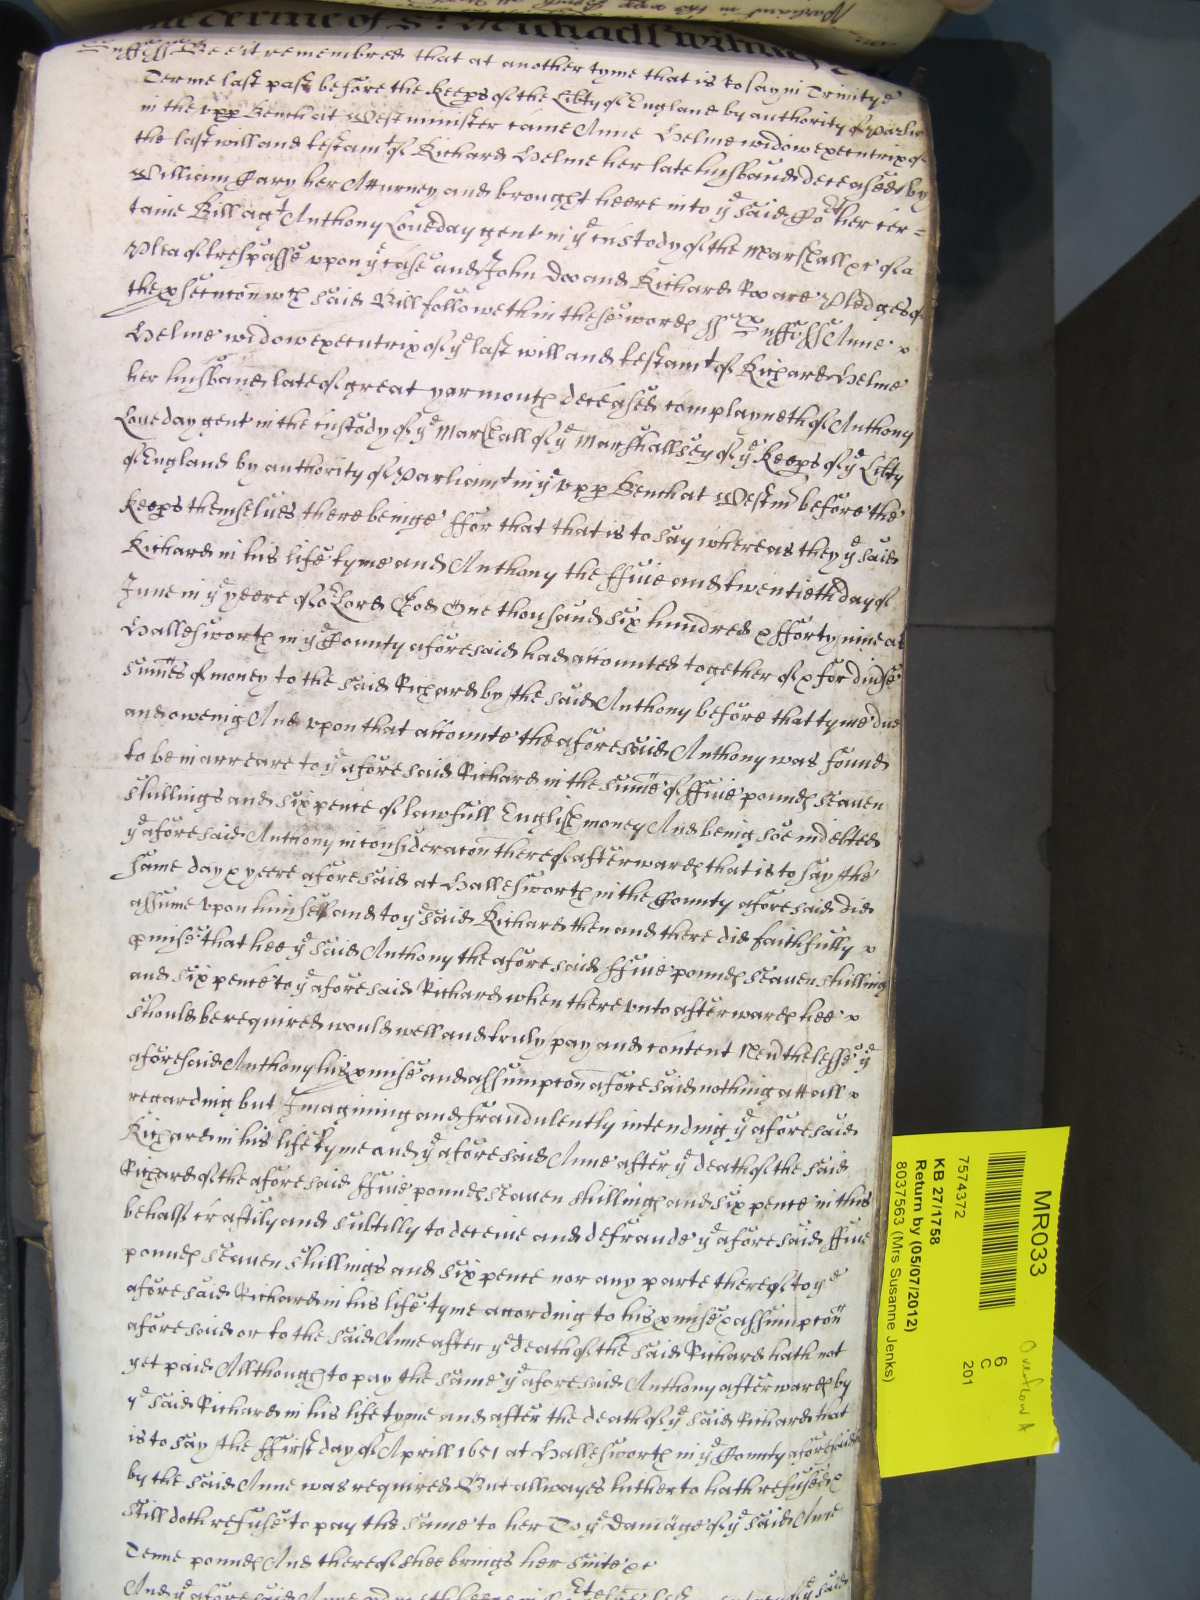 Terme of St Michaell witnes
Suffss Bee it remembred that at another tyme that is to say in Trinity
Terme last past before the Keeps of the Libty of England by authority of Parlia
in the vpp Bench at Westminster came Anne Helme widow executrix of
the last will and testamt of Richard Helme her late husband deceased by
William Gary her Atturney and brought heere into ye said Cort her cer=
taine Bill agt Anthony Loueday gent in ye custody of the Marshall &c of a
Plea of trespasse vpon ye case and John Doo and Richard Roo are Pledges of
the psecucon wch said Bill followeth in these words ss Suffolk ss Anne
Helme widow executrix of ye last will and testamt of Richard Helme
her husband late of great yarmouth deceased complayneth of Anthony
Loueday gent in the custody of ye Marshall of ye Marshallsey of ye Keeps of ye Libty
of England by authority of Parliamt in ye vpp Bench at Westm before the
Keeps themselues there beinge ffor that that is to say whereas they ye said
Richard in his life tyme and Anthony the ffiue and twentieth day of
June in ye yeere of or Lord God One thousand six hundred & fforty nine at
Hallesworth in ye County aforesaid had accounted together of & for diuse
summes of money to the said Richard by the said Anthony before that tyme due
and oweing And vpon that accounte the aforesaid Anthony was found
to be in arreare to ye aforesaid Richard in the summe of ffiue pounds seauen
shillings and six pence of lawfull English money And being soe indebted
ye aforesaid Anthony in consideracon thereof afterwards that is to say the
same day & yeere aforesaid at Hallesworth in the County aforesaid did
assume vpon himself and to ye said Richard then and there did faithfully
pmise that hee ye said Anthony the aforesaid ffiue pounds seauen shillings
and six pence to ye aforesaid Richard when there vnto afterwards hee
should be required would well and truly pay and content Neuthelesse ye
aforesaid Anthony his pmise and assumpcon aforesaid nothing att all
regarding but Imagining and fraudulently intending ye aforesaid
Richard in his life tyme and ye aforesaid Anne after ye death of the said
Richard of the aforesaid ffiue pounds seauen shillings and six pence in this
behalf craftily and subtilly to deceiue and defraude ye aforesaid ffiue
pounds seauen shillings and six pence nor any parte thereof to ye
aforesaid Richard in his life tyme according to his pmise & assumpcon
aforesaid or to the said Anne after ye death of the said Richard hath not
yet paid Allthough to pay the same ye aforesaid Anthony afterwards by
ye said Richard in his life tyme and after the death of ye said Richard that
is to say the ffirst day of Aprill 1651 at Hallesworth in ye County aforesaid
by the said Anne was required But allwayes hitherto hath refused &
still doth refuse to pay the same to her To ye Damage of ye said Anne
Tenne pounds And thereof shee brings her suite &c
And ye aforesaid Anne
MR033
7574372
KB 27/1758
Return by (05/07/2012)
8037563 (Mrs Susanne Jenks)
6
C
201
Overflow A